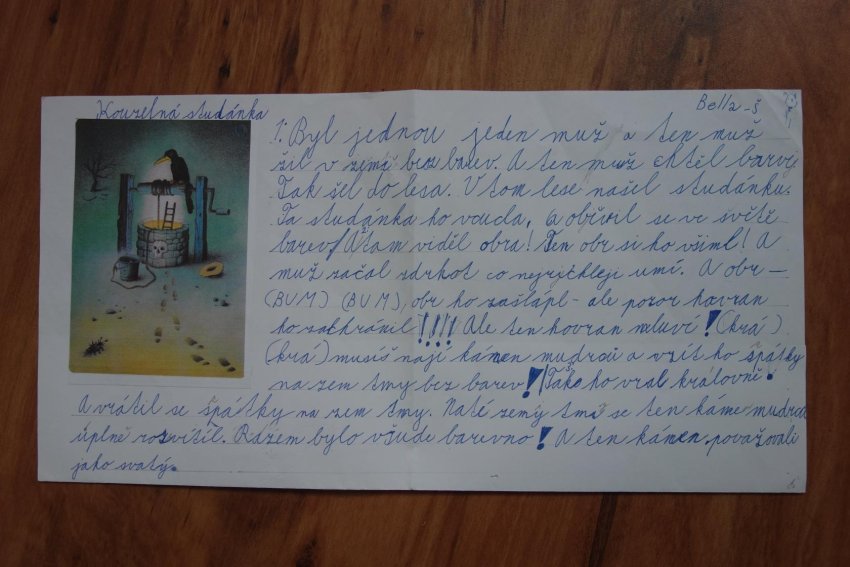 Kouzelná studánka
Bella-Š
1. Byl jednou jeden muž a ten muž
žil v zemi bez barev. A ten muž chtěl barvy
Tak šel do lesa. V tom lese našel studánku.
Ta studánka ho vcucla, a obživil se ve světě
barev! A tam viděl obra! Ten obr si ho všiml! A
muž začal zdrkot co nejrychleji umí. A obr –
(BUM) (BUM), obr ho zašlapl – ale pozor havran
ho zachránil!!!!! Ale ten havran mluví! (krá)
(krá) musíš nají kámen mudrců a vzít ho špátky
na zem tmy bez barev! Tak ho vzal královně!
A vrátil se špátky na zem tmy. Na té zemy tmi se ten kámen mudrců
úplně rozvítil. Rázem bylo všude barevno! A ten kámen považovali
jako svatý.